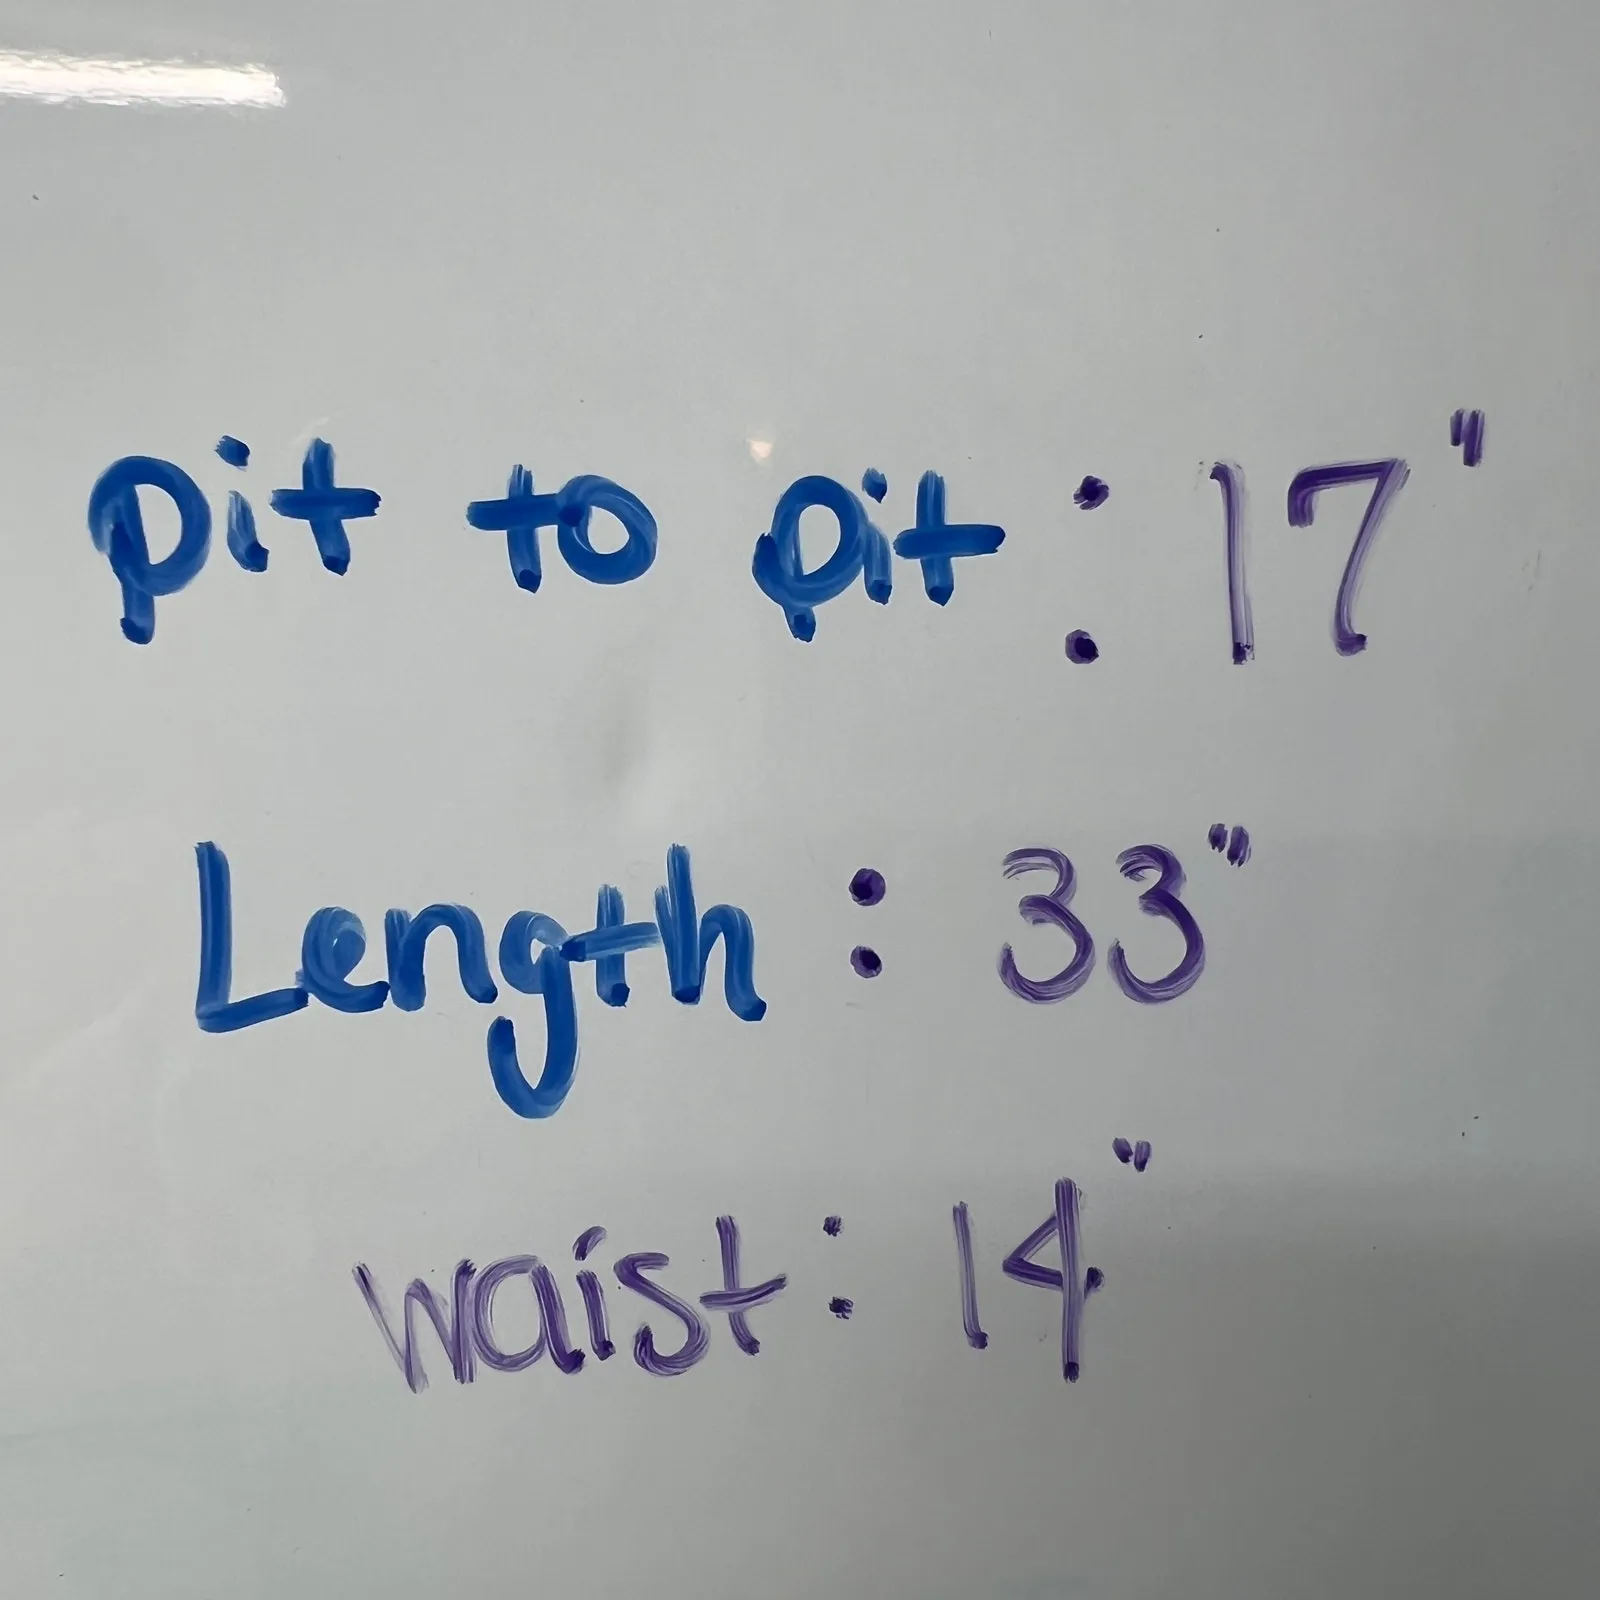 pit to pit : 17"
Length : 33"
waist : 14"